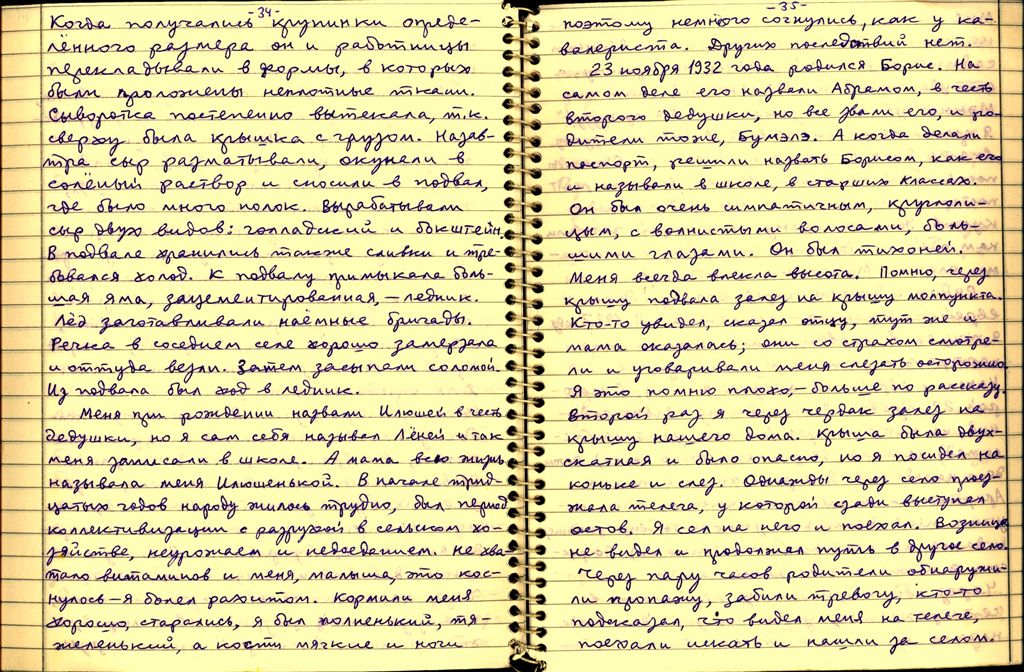 -34-
Когда получались крупинки опреде-
лённого размера он и работницы
перекладывали в формы, в которых
были проложены неплотные ткани.
Сыворотка постепенно вытекала, т.к.
сверху была крышка с грузом. Назав-
тра сыр разматывали, окунали в
солёный раствор и сносили в подвал,
где было много полок. Вырабатывали
сыр двух видов: голладский и бокштейн.
В подвале хранились также сливки и тре-
бовался холод. К подвалу примыкала боль-
шая яма, зацементированная, – ледник.
Лёд заготавливали наёмные бригады.
Речка в соседнем селе хорошо замерзала
и оттуда везли. Затем засыпали соломой.
Из подвала был ход в ледник.
Меня при рождении назвали Илюшей в честь
дедушки, но я сам себя называл Лёней и так
меня записали в школе. А мама всю жизнь
называла меня Илюшенькой. В начале трид-
цатых годов народу жилось трудно, был период
коллективизации с разрухой в сельском хо-
зяйстве, неурожаем и недоеданием. Не хва-
тало витаминов и меня, малыша, это кос-
нулось – я болел рахитом. Кормили меня
хорошо, старались, я был полненький, тя-
желенький, а кости мягкие и ноги
-35-
поэтому немного согнулись, как у ка-
валериста. Других последствий нет.
23 ноября 1932 года родился Борис. На
самом деле его назвали Абрамом, в честь
второго дедушки, но все звали его, и ро-
дители тоже, Бумалэ. А когда делали
паспорт, решили назвать Борисом, как его
и называли в школе, в старших классах.
Он был очень симпатичным, круглоли-
цым, с волнистыми волосами, боль-
шими глазами. Он был тихоней.
Меня всегда влекла высота. Помню, через
крышу подвала залез на крышу молпункта.
Кто-то увидел, сказал отцу, тут же и
мама оказалась; они со страхом смотре-
ли и уговаривали меня слезать осторожно.
Я это помню плохо, – больше по рассказу.
Второй раз я через чердак залез на
крышу нашего дома. Крыша была двух-
скатная и было опасно, но я посидел на
коньке и слез. Однажды через село проез-
жала телега, у которой сзади выступал
остов. Я сел на него и поехал. Возница
не видел и продолжал путь в другое село.
Через пару часов родители обнаружи-
ли пропажу, забили тревогу, кто-то
подсказал, что видел меня на телеге,
поехали искать и нашли за селом.